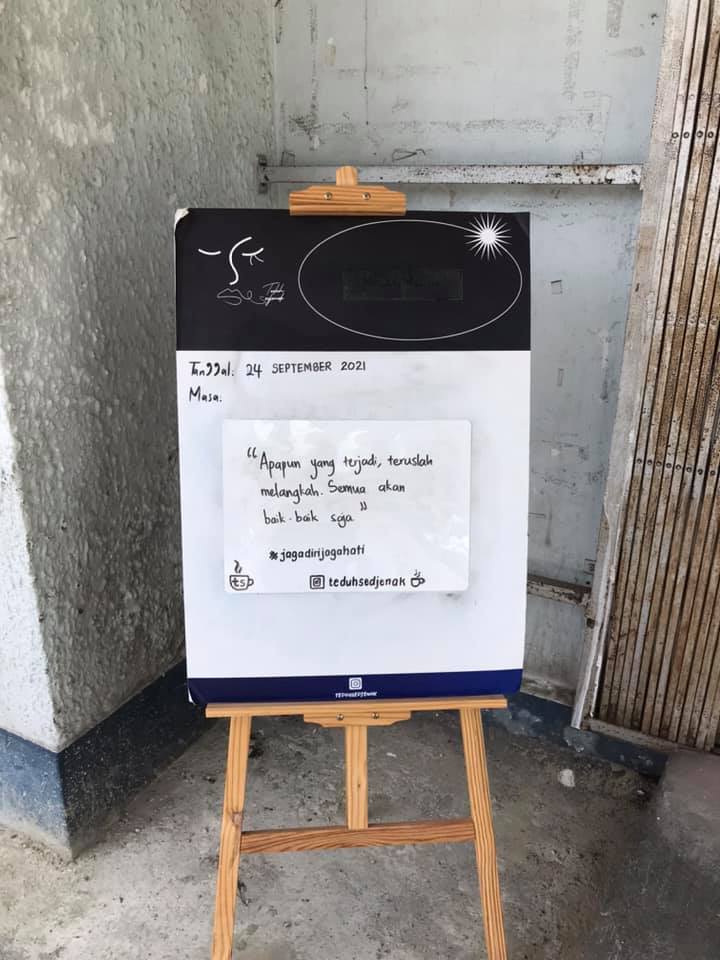 Tanggal: 24 SEPTEMBER 2021
Masa:
"Apapun yang terjadi, teruslah
melangkah. Semua akan
baik-baik saja"
#jagadirijagahati
ts
teduhsedjenak
TEDUHSEDJENAK